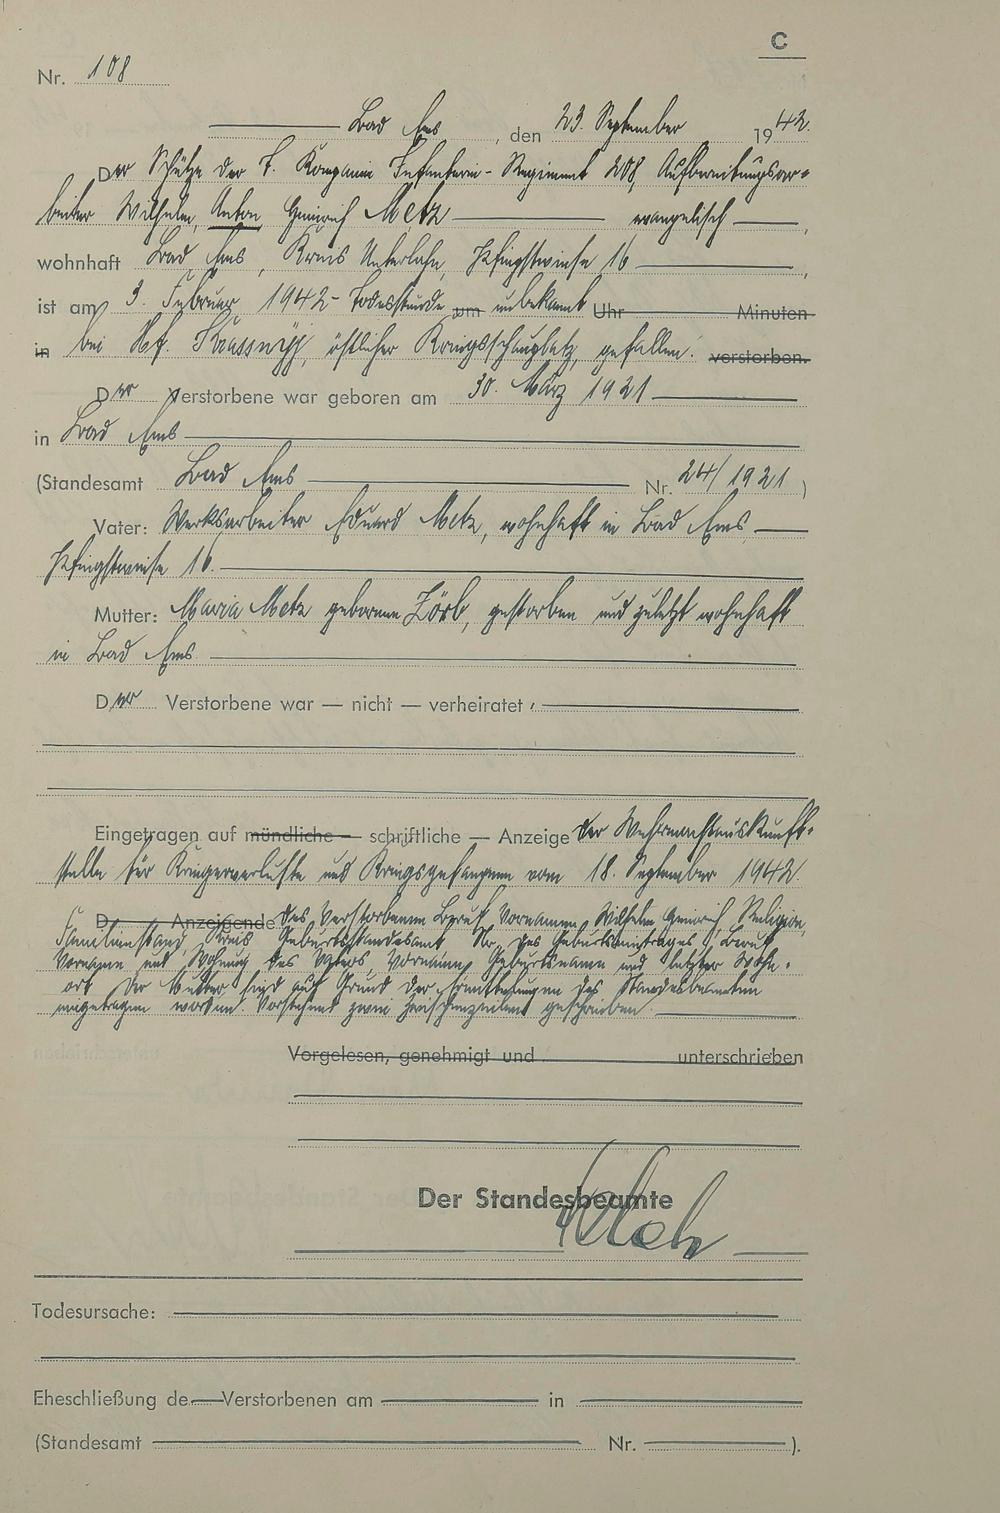 C
Nr. 108
Bad Ems, den 23. September 1942.
Der Schütze der 7. Kompanie Infanterie-Regiment 208, Aufbereitungsar-
beiter Wilhelm, Anton, Heinrich Metz evangelisch,
wohnhaft Bad Ems, Kreis Unterlahn, Pfingstwiese 16,
ist am 3. Februar 1942 - Todesstunde um unbekannt Uhr Minuten
in bei Hf. Krassnyj, östlicher Kriegsschauplatz, gefallen. verstorben.
Der Verstorbene war geboren am 30. März 1921
in Bad Ems
(Standesamt Bad Ems Nr. 24/1921)
Vater: Werksarbeiter Eduard Metz, wohnhaft in Bad Ems
Pfingstwiese 16.
Mutter: Maria Metz geborene Zörb, gestorben und zuletzt wohnhaft
in Bad Ems
Der Verstorbene war — nicht — verheiratet.
Eingetragen auf mündliche — schriftliche — Anzeige der Wehrmachtauskunft-
stelle für Kriegerverluste und Kriegsgefangene vom 18. September 1942.
D Anzeigende des Verstorbenen Beruf, Vornamen, Wilhelm, Heinrich, Religion,
Familienstand, Kreis, Geburtsstandesamt, Nr. des Geburtseintrages, Beruf
Vorname und Wohnung des Vaters Vorname, Geburtsname und letzter Wohn-
ort der Mutter sind auf Grund der Ermittelungen des Standesbeamten
eingetragen worden. Vorstehend zwei Zwischenzeilen geschrieben.
Vorgelesen, genehmigt und unterschrieben
Der Standesbeamte
Todesursache:
Eheschließung de Verstorbenen am in
(Standesamt Nr. ).